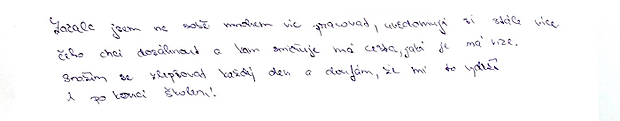 Začala jsem na sobě mnohem víc pracovat, uvědomuji si stále více
čeho chci dosáhnout a kam směřuje má cesta, jaká je má vize.
Snažím se zlepšovat každý den a doufám, že mi to vydrží
i po konci školení!